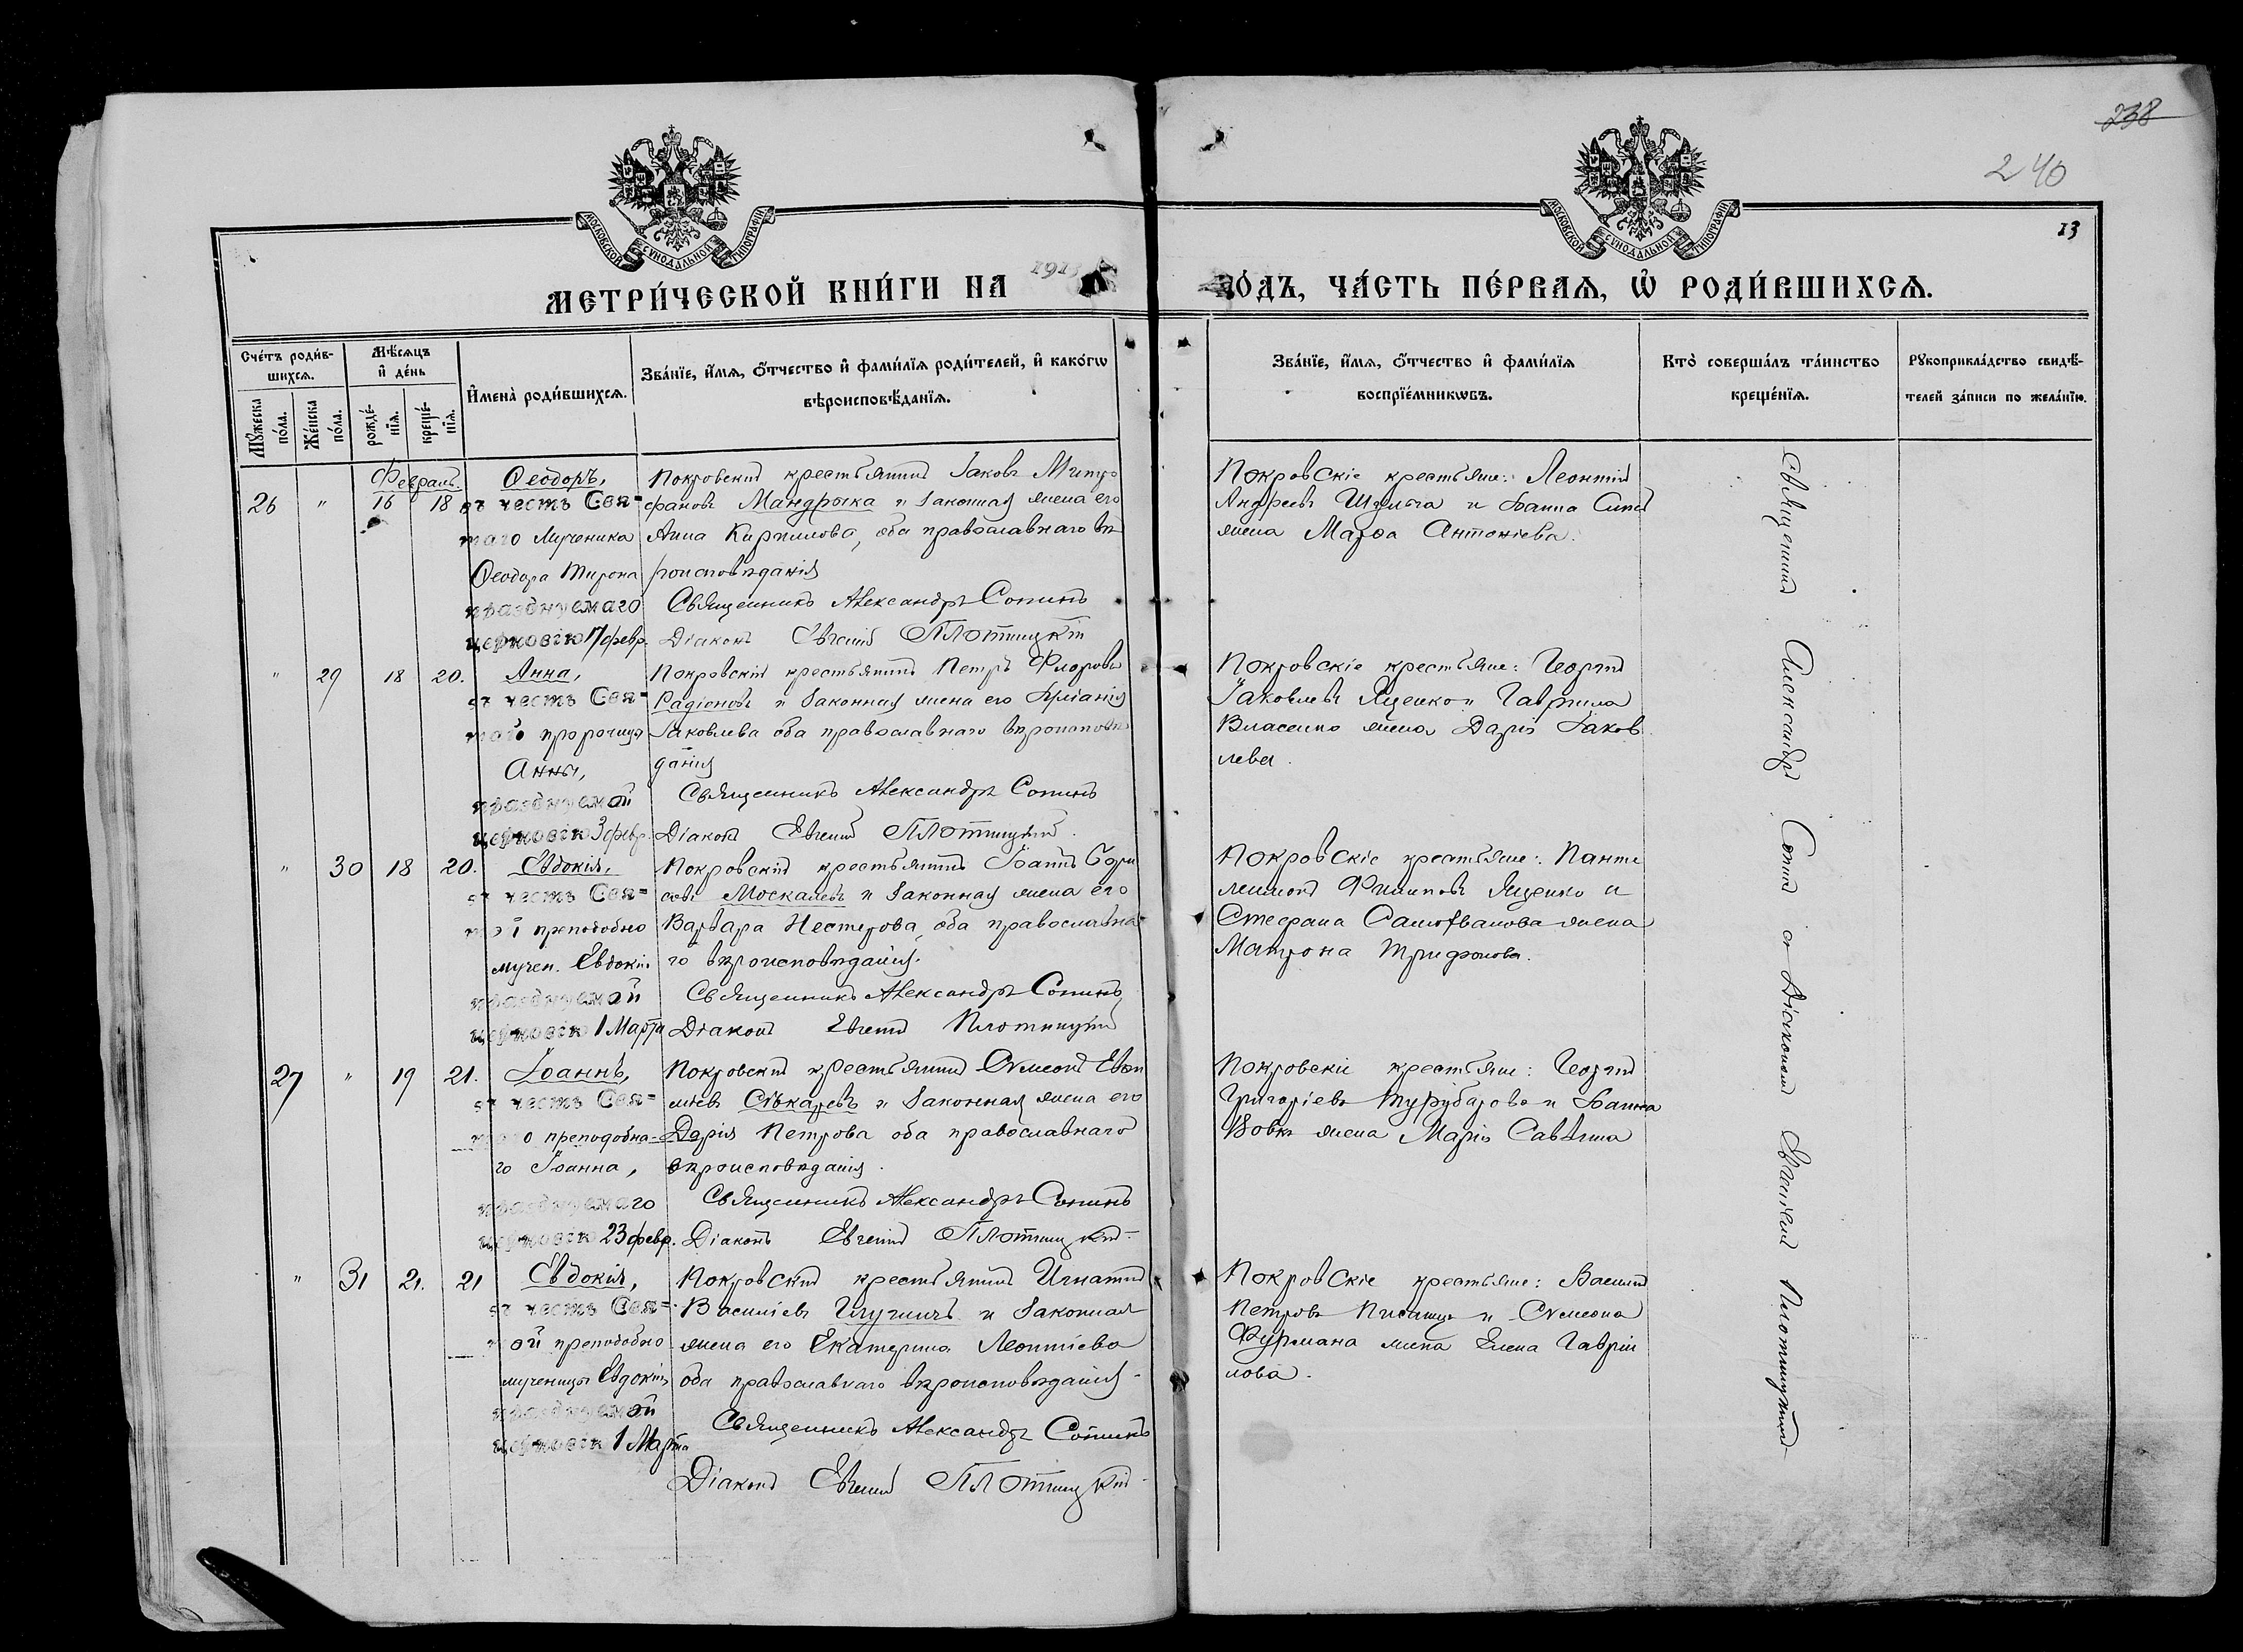 238
240
13
МОСКОВСКОЙ СУНОДАЛЬНОЙ ТИПОГРАФІИ
МОСКОВСКОЙ СУНОДАЛЬНОЙ ТИПОГРАФІИ
МЕТРИ́ЧЕСКОЙ КНИ́ГИ НА 1913
ГО́ДЪ, ЧА́СТЬ ПЕ́РВАѦ, Ѡ҆ РОДИ́ВШИХСѦ.
Сче́тъ роди́в-
шихсѧ.
Мꙋ́жеска по́ла.
Же́нска по́ла.
Мѣ́сѧцъ и҆ де́нь
рожде́-
нїѧ.
креще́-
нїѧ.
И҆мена̀ роди́вшихсѧ.
Зва́нїе, и҆́мѧ, ѻ҆́тчество и҆ фами́лїѧ роди́телей, и҆ како́гѡ
вѣроисповѣ́данїѧ.
Зва́нїе, и҆́мѧ, ѻ҆́тчество и҆ фами́лїѧ
воспрїе́мникѡвъ.
Кто̀ соверша́лъ та́инство
креще́нїѧ.
Рꙋкоприкла́дство свидѣ́-
телей за́писи по жела́нїю.
Февраль.
26 " 16 18
Ѳеодоръ,
въ честь Свя=
таго Мученика
Ѳеодора Тирона
празднуемаго
церковію 17 февр.
Покровскій крестьянинъ Іаковъ Митро
фановъ Мандрыка и законная жена его
Анна Кириллова, оба православнаго вѣ
роисповѣданія
Священникъ Александръ Сопинъ
Діаконъ Евгеній Плотницкій
Покровскіе крестьяне: Леонтій
Андреевъ и Іоанна
жена Марѳа Антоніева.
" 29 18 20.
Анна,
въ честь Свя=
той пророчицы
Анны,
празднуемой
церковію 3 февр.
Покровскій крестьянинъ Петръ Флоровъ
Радіоновъ и законная жена его
Іаковлева оба православнаго вѣроисповѣ
данія
Священникъ Александръ Сопинъ
Діаконъ Евгеній Плотницкій.
Покровскіе крестьяне: Георгій
Іаковлевъ Яценко и Гавриила
Власенко жена Дарія Іаков
лева.
" 30 18 20.
Евдокія,
въ честь Свя=
той преподобно
мучен. Евдокіи
празднуемой
церковію 1 Марта
Покровскій крестьянинъ Іоаннъ
Москалевъ и законная жена его
Варвара Нестерова, оба православна
го вѣроисповѣданія.
Священникъ Александръ Сопинъ
Діаконъ Евгеній Плотницкій
Покровскіе крестьяне: Панте
леимонъ Филиповъ Яценко и
Стефана Самойванова жена
Матрона Трифонова.
27 " 19 21.
Іоаннъ,
въ честь Свя=
таго преподобна-
го Іоанна,
празднуемаго
церковію 23 февр.
Покровскій крестьянинъ Сѵмеонъ
законная жена его
Дарія Петрова оба православнаго
вѣроисповѣданія.
Священникъ Александръ Сопинъ
Діаконъ Евгеній Плотницкій
Покровскіе крестьяне: Георгій
Григоріевъ и Іоанна
Вовк жена Марія Саввина
" 31 21. 21
Евдокія,
въ честь Свя=
той преподобно
мученицы Евдокіи,
празднуемой
церковію 1 Марта
Покровскій крестьянинъ Игнатій
Василіевъ и законная
жена его Екатерина Леонтіева
оба православнаго вѣроисповѣданія.
Священникъ Александръ Сопинъ
Діаконъ Евгеній Плотницкій
Покровскіе крестьяне: Василій
Петровъ и Сѵмеона
Фурмана жена Елена Гаврии
лова.
Священникъ Александръ Сопинъ съ Діакономъ Евгеніемъ Плотницкимъ